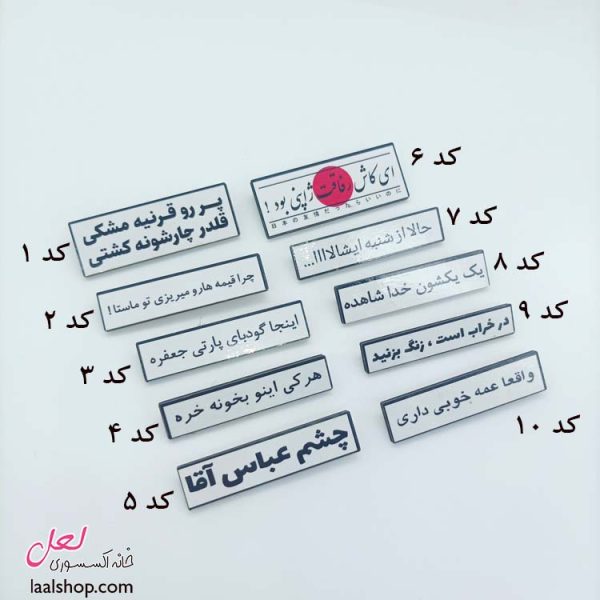 پر رو قرنیه مشکی
قلدر چارشونه کشتی
کد ۱
چرا قیمه هارو میریزی تو ماستا!
کد ۲
اینجا گودبای پارتی جعفره
کد ۳
هرکی اینو بخونه خره
کد ۴
چشم عباس آقا
کد ۵
ای کاش رفاقت ژاپنی بود!
کد ۶
حالا از شنبه ایشالااااا...
کد ۷
یک یکشون خدا شاهده
کد ۸
در خراب است ، زنگ بزنید
کد ۹
واقعا عمه خوبی داری
کد ۱۰
لعل
خانه اکسسوری
laalshop.com